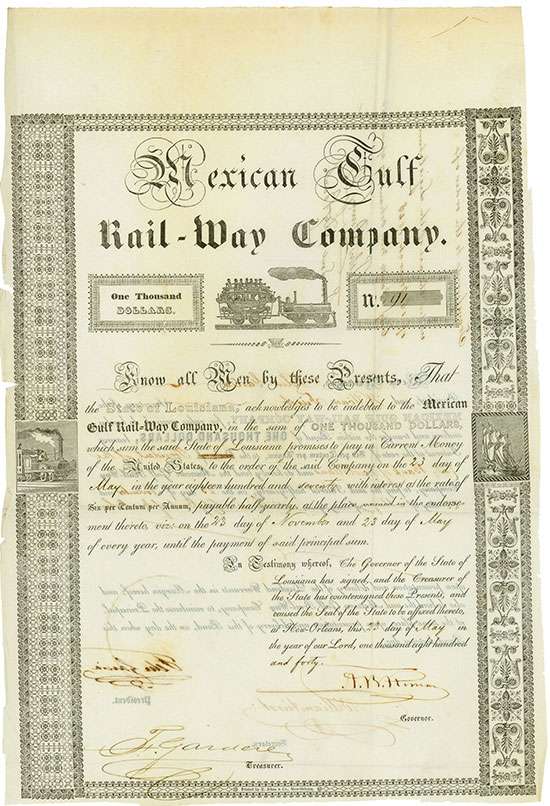 Mexican Gulf
Rail-Way Company.
One Thousand
DOLLARS.
No.
Know all Men by these Presents, That
the State of Louisiana, acknowledges to be indebted to the Mexican
Gulf Rail-Way Company, in the sum of ONE THOUSAND DOLLARS,
which sum the said State of Louisiana promises to pay in Current Money
of the United States, to the order of the said Company on the 23 day of
May in the year eighteen hundred and seventy with interest at the rate of
Six per Centum per Annum, payable half-yearly, at the place named in the endorse-
ment thereto, viz: on the 23 day of November and 23 day of May
of every year, until the payment of said principal sum.
In Testimony whereof, The Governor of the State of
Louisiana has signed, and the Treasurer of
the State has countersigned these Presents, and
caused the Seal of the State to be affixed thereto,
at New-Orleans, this 23 day of May in
the year of our Lord, one thousand eight hundred
and forty.
A. B. Roman
Governor.
F. Gardere
Treasurer.